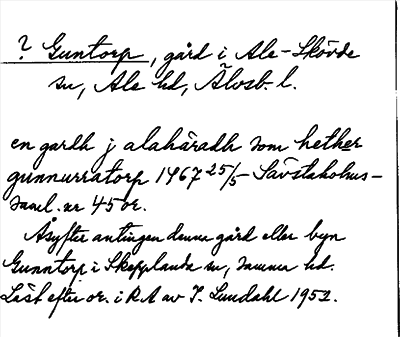 ? Guntorp, gård i Ale-Skövde
sn, Ale hd, Älvsb. l.
en gardh j alahäradh som hether
gunnurratorp 1467 25/5 Sävstaholms-
saml. nr 45 or.
Åsyftar antingen denna gård eller byn
Gunntorp i Skepplanda sn, samma hd.
Läst efter or. i RA av I. Lundahl 1952.